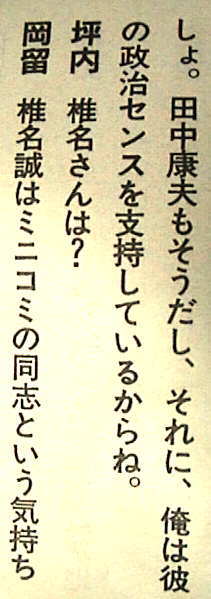 しょ。田中康夫もそうだし、それに、俺は彼
の政治センスを支持しているからね。
坪内　椎名さんは？
岡留　椎名誠はミニコミの同志という気持ち